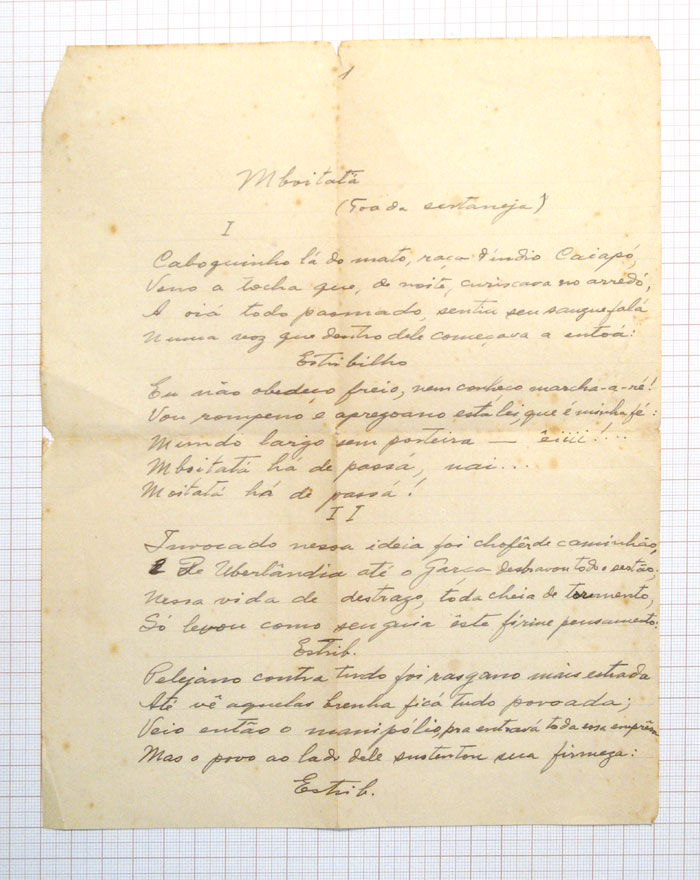 1
Mboitatá
(Toada sertaneja)
I
Caboquinho lá do mato, raça d'indio Caiapó,
Veno a tocha que, de noite, curiscava no arredó,
A oiá todo pasmado, sentiu seu sangue falá
Numa voz que dentro dele começava a entoá:
Estribilho
Eu não obedeço freio, nem conheço marcha-a-ré!
Vou rompeno e apregoano esta lei, que é minha fé:
Mundo largo sem porteira — êiiii!...
Mboitatá há de passá, uai...
Moitatá há de passá!
II
Invocado nessa ideia foi chofêr de caminhão,
De Uberlândia até o Garça desbravou todo o sertão;
Nessa vida de destraço, toda cheia de toromento,
Só levou como seu guia êste firme pensamento:
Estrib.
Pelejano contra tudo foi rasgano mais estrada
Até vê aquelas brenha ficá tudo povoada;
Veio então o manipólio pra entravá toda essa emprêsa
Mas o povo ao lado dele sustentou sua firmeza:
Estrib.